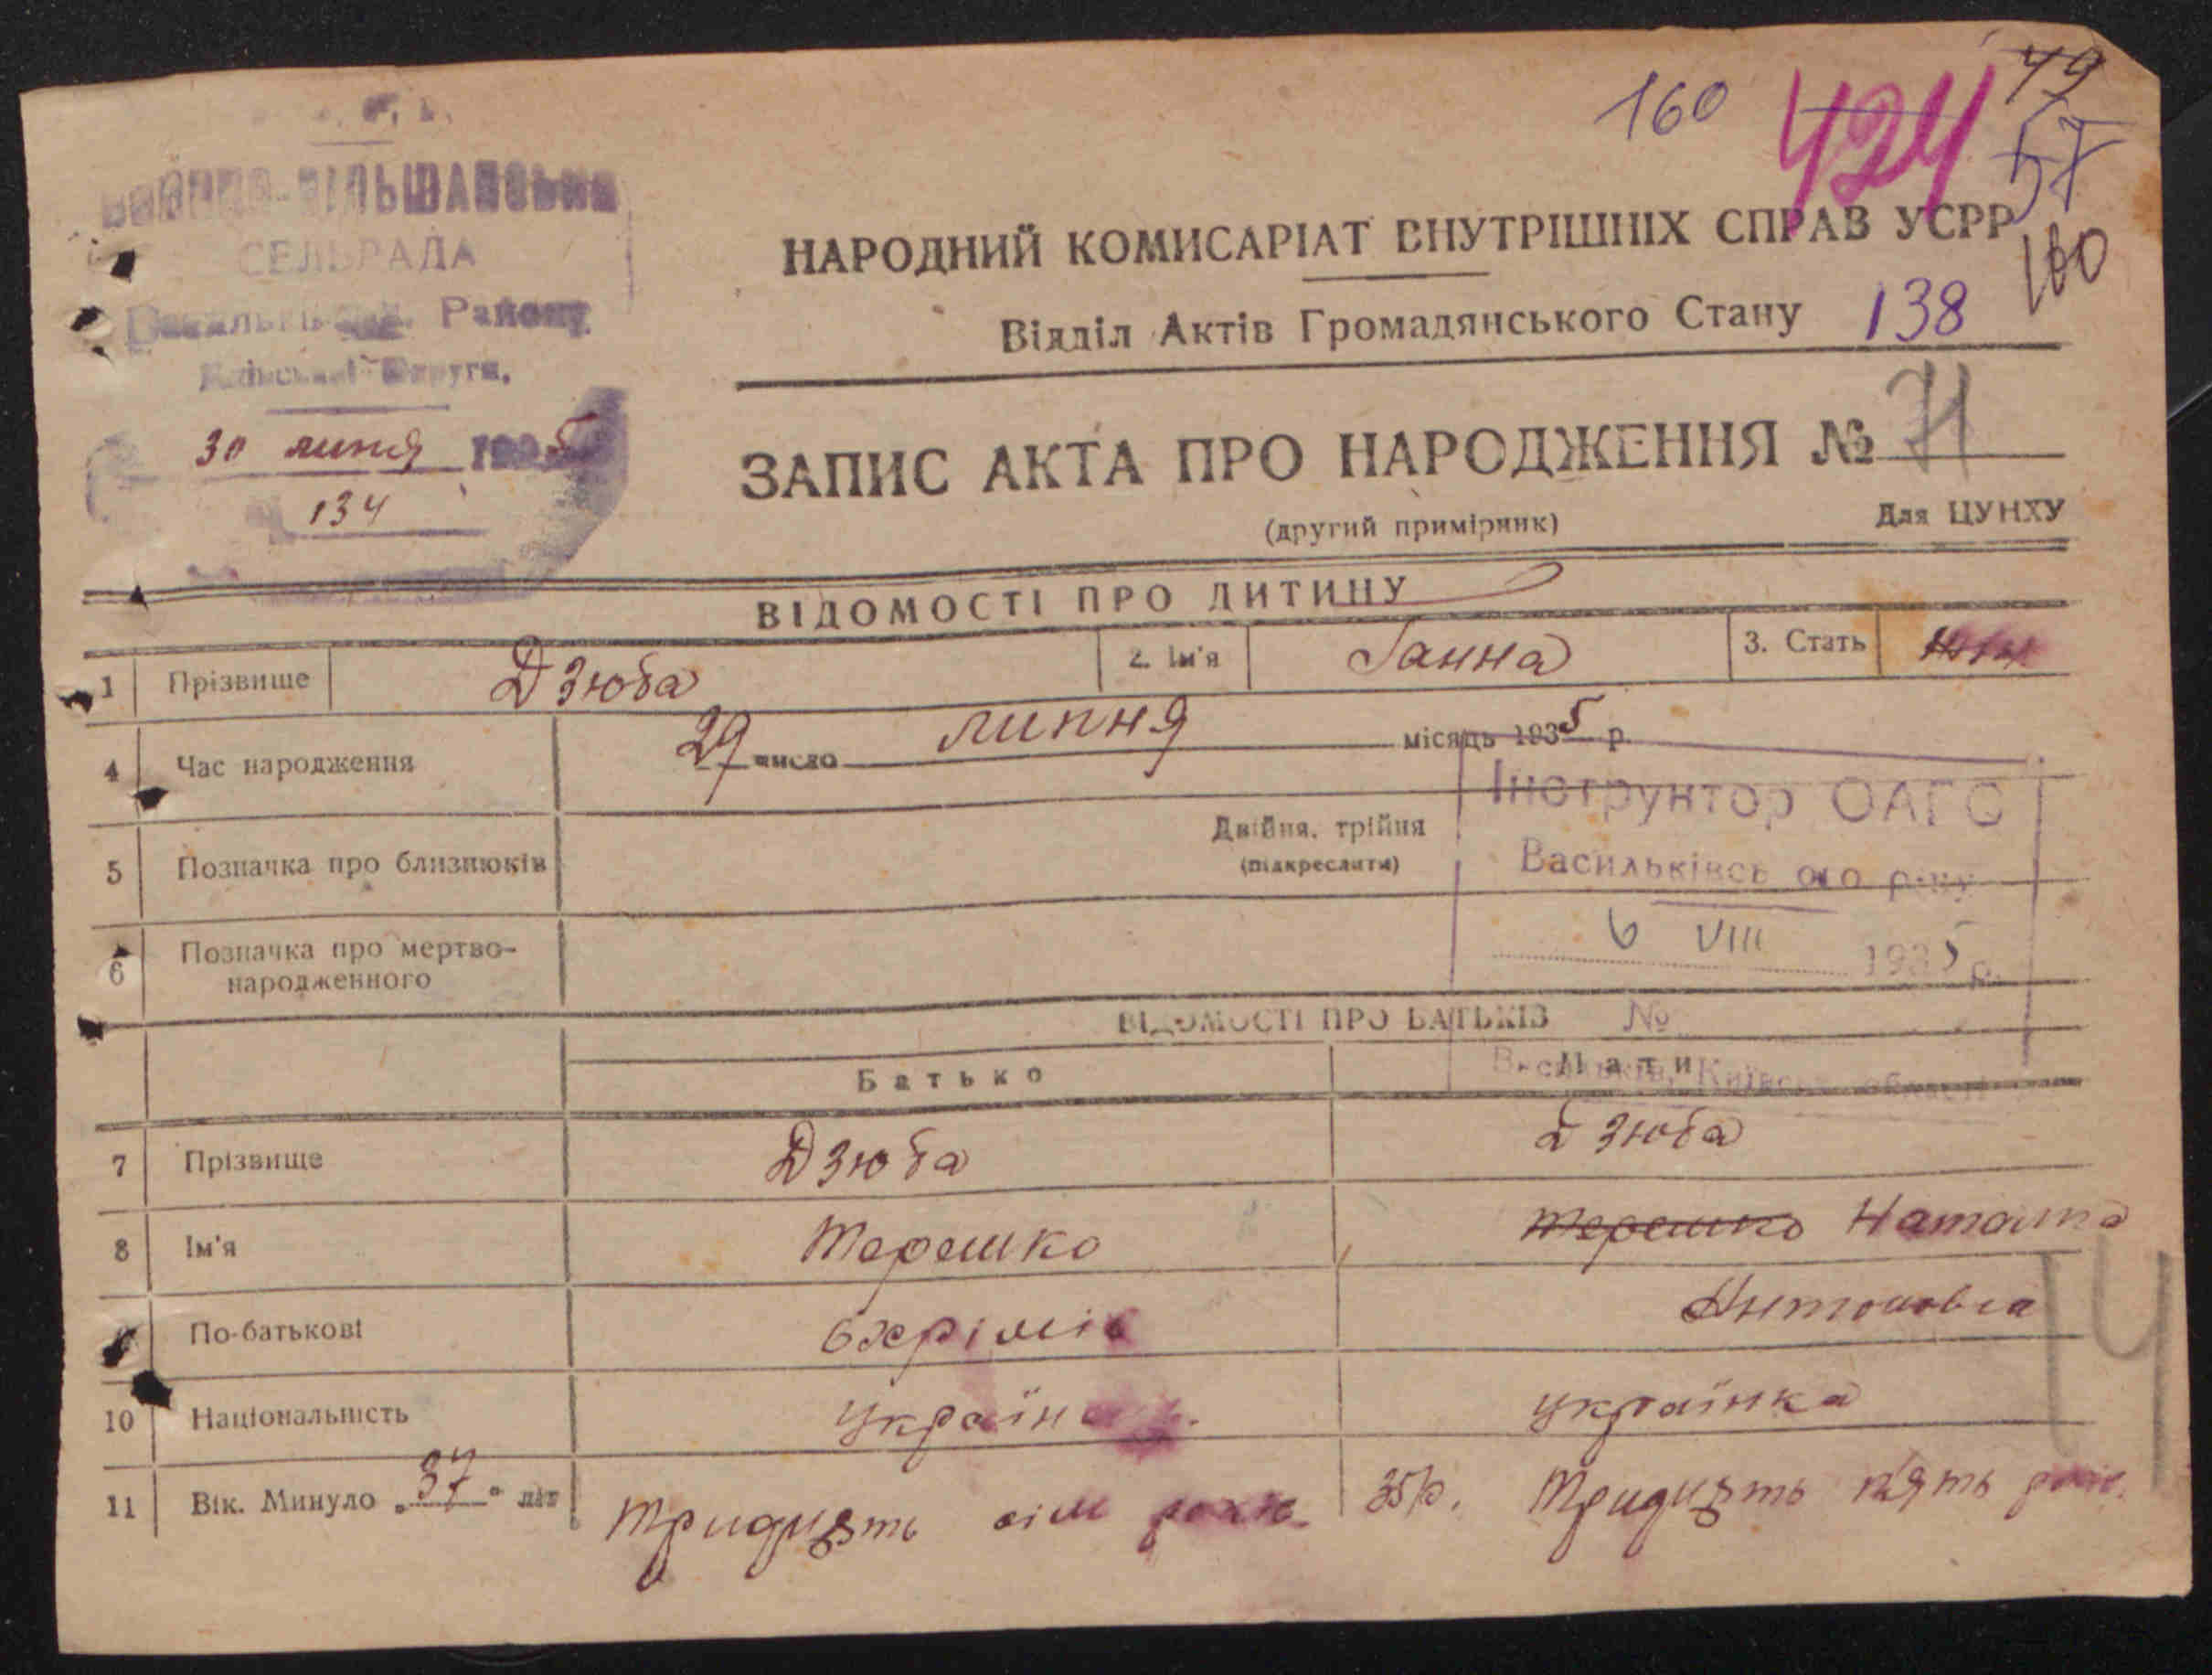 160 424 49
57
160
СЕЛЬРАДА
Району
Округи.
30 липня 1935
134
НАРОДНИЙ КОМИСАРІАТ ВНУТРІШНІХ СПРАВ УСРР
Відділ Актів Громадянського Стану 138
ЗАПИС АКТА ПРО НАРОДЖЕННЯ № 71
(другий примірник) Для ЦУНХУ
ВІДОМОСТІ ПРО ДИТИНУ
1 Прізвище Дзюба 2. Ім'я Ганна 3. Стать
4 Час народження 29 число липня місяць 1935 р.
Інструктор ОАГС
5 Позначка про близнюків Двійня, трійня
(підкреслити)
Васильківського р-ну
6 VIII 1935 р.
6 Позначка про мертво-
народженного
ВІДОМОСТІ ПРО БАТЬКІВ №
Батько Мати
Васильків, Київськ. області
7 Прізвище Дзюба Дзюба
8 Ім'я Терешко Терешко Наталка
9 По-батькові Охрімів Антоновна
14
10 Національність Українець. українка
11 Вік. Минуло „37" літ Тридцять сім років 35 р. Тридцять п'ять років.